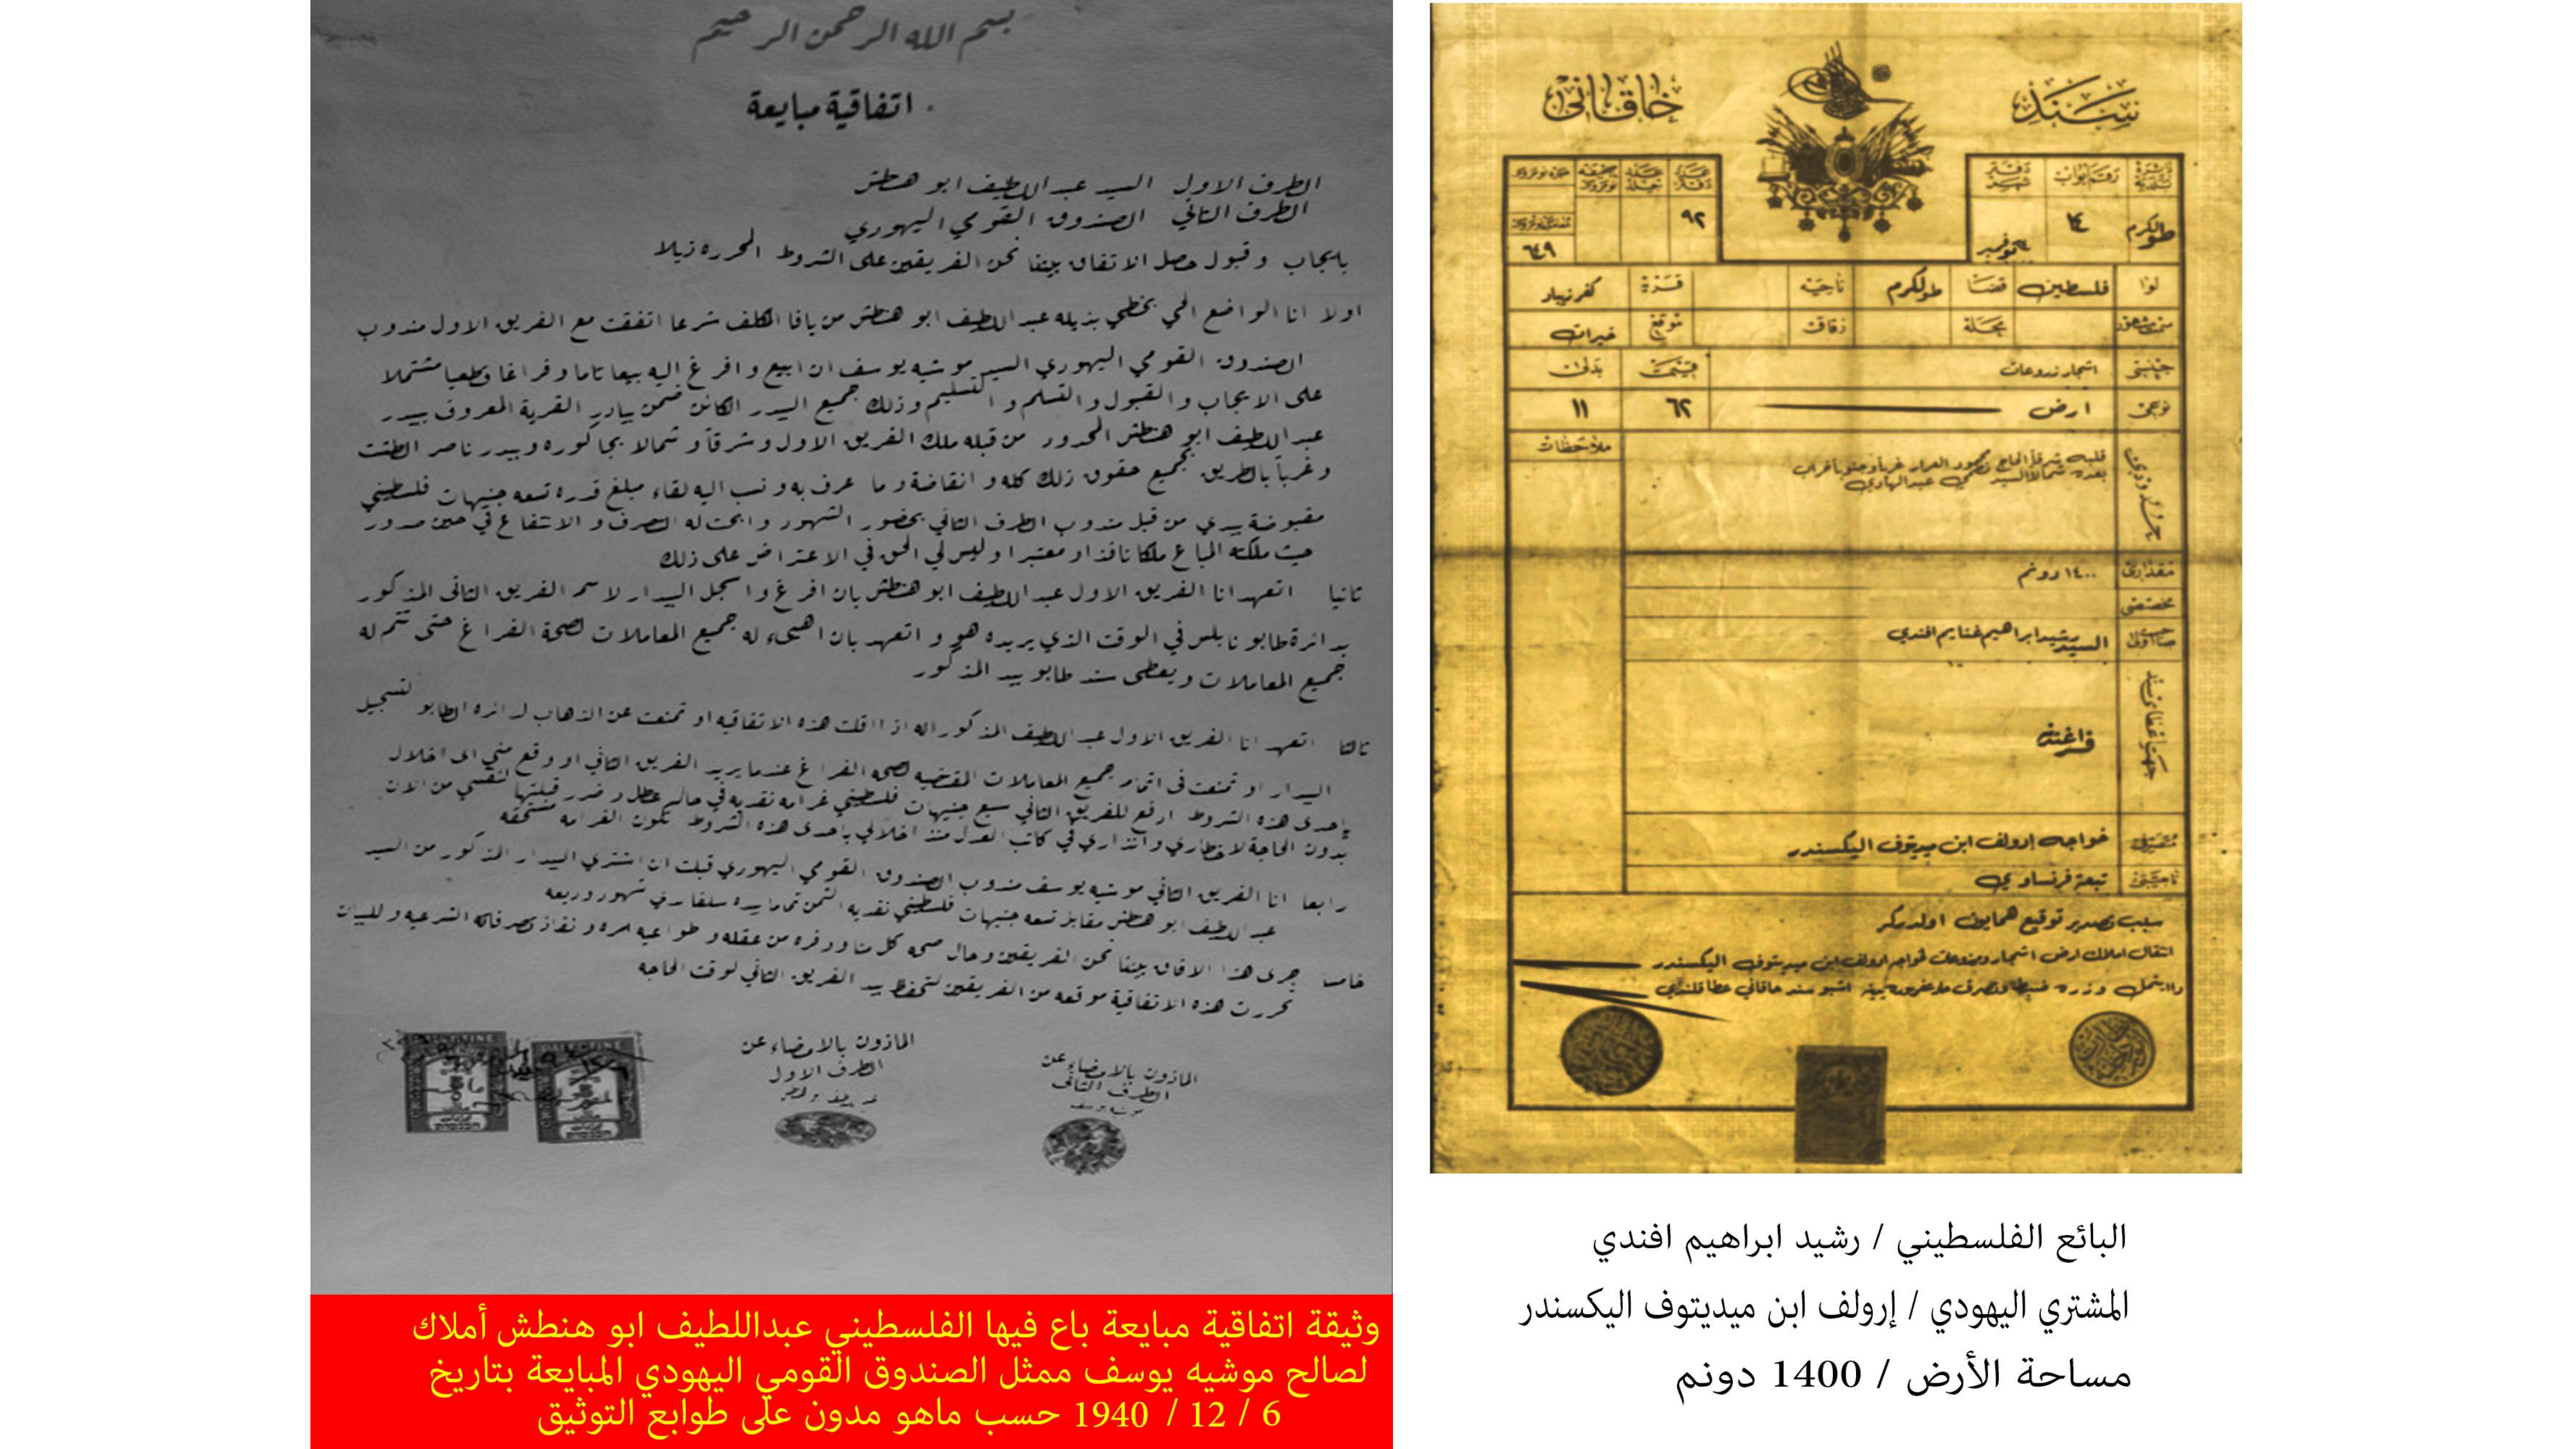 بسم الله الرحمن الرحيم
اتفاقية مبايعة
الطرف الاول السيد عبد اللطيف ابو هنطش
الطرف الثاني الصندوق القومي اليهودي
بايجاب و قبول حصل الاتفاق بيننا نحن الفريقين على الشروط المحرره ذيلا
اولا انا الواضع اسمي بخطي بذيله عبد اللطيف ابو هنطش من يافا المكلف شرعا اتفقت مع الفريق الاول مندوب
الصندوق القومي اليهودي السيد موشيه يوسف ان ابيع و افرغ اليه بيعا تاما و فراغا قطعيا مشتملا
على الايجاب و القبول و التسلم و التسليم وذلك جميع البيدر الكائن ضمن بيادر القرية المعروف ببيدر
عبد اللطيف ابو هنطش المحدود من قبله ملك الفريق الاول و شرقاً و شمالا بجاكوره وبيدر ناصر الطشت
و غرباً بالطريق بجميع حقوق ذلك كله و انقاضة و ما عرف به و نسب اليه لقاء مبلغ قدره تسعه جنيهات فلسطيني
مقبوضة بيدي من قبل مندوب الطرف الثاني بحضور الشهود و ابحت له التصرف و الانتفاع في حين صدور
حيث ملكته المباع ملكا نافذا و معتبرا و ليس لي الحق في الاعتراض على ذلك
ثانيا اتعهد انا الفريق الاول عبد اللطيف ابو هنطش بان افرغ و اسجل البيدار لاسم الفريق الثانى المذكور
بدائرة طابو نابلس في الوقت الذي يريده هو و اتعهد بان اهيىء له جميع المعاملات لصحة الفراغ حتى تتم له
جميع المعاملات و يعطى سند طابو بيد المذكور
ثالثا اتعهد انا الفريق الاول عبد اللطيف المذكور انه اذا اقلت هذه الاتفاقيه او تمنعت عن الذهاب لدائره الطابو لتسجيل
البيدار او تمنعت فى اتمام جميع المعاملات المقتضيه لصحه الفراغ عندما يريد الفريق الثاني او وقع مني اى اخلال
باحدى هذه الشروط ادفع للفريق الثاني سبع جنيهات فلسطيني غرامه نقديه في حالم عطل و ضرر قبلتها لنفسي من الان
بدون الحاجة لاخطاري و انذاري في كاتب العدل منذ اخلالي باحدى هذه الشروط تكون الغرامه مستحقه
رابعا انا الفريق الثاني موشيه يوسف مندوب الصندوق القومي اليهودي قبلت ان اشتري البيدار المذكور من السيد
عبد اللطيف ابو هنطش مقابل تسعه جنيهات فلسطيني نقديه الثمن تماما بيده
خامسا جرى هذا الاتفاق بيننا نحن الفريقين و حال صحه كل منا و وفره من عقله و طواعيه امره و نفاذ تصرفاته الشرعيه و للبيان
تحررت هذه الاتفاقية موقعه من الفريقين لتحفظ بيد الفريق الثاني لوقت الحاجه
الماذون بالامضاء عن
الطرف الاول
الماذون بالامضاء عن
الطرف الثانى
موشيه يوسف
PALESTINE
وثيقة اتفاقية مبايعة باع فيها الفلسطيني عبداللطيف ابو هنطش أملاك
لصالح موشيه يوسف ممثل الصندوق القومي اليهودي المبايعة بتاريخ
6 / 12 / 1940 حسب ماهو مدون على طوابع التوثيق
سند خاقانى
رقم ابواب
طولكرم ١٤ نوفمبر ٩٢ ٦٤٩
لوا فلسطين قضا طولكرم ناحيه قريه كفر زيباد
محله زقاق موقع خيرات
جنسى اشجار زروعات قيمت بدلى
نوعى ارض ٦٢ ١١
ملاحظات
١٤٠٠ دونم
السيد رشيد ابراهيم غنايم افندي
فراغندن
خواجه إرولف ابن ميديتوف اليكسندر
تبعة فرنساوي
سبب تصدير توقيع همايون اولدركر
انتقال املاك ارض اشجار ومزروعات خواجه ارولف ابن ميديتوف اليكسندر
البائع الفلسطيني / رشيد ابراهيم افندي
المشتري اليهودي / إرولف ابن ميديتوف اليكسندر
مساحة الأرض / 1400 دونم